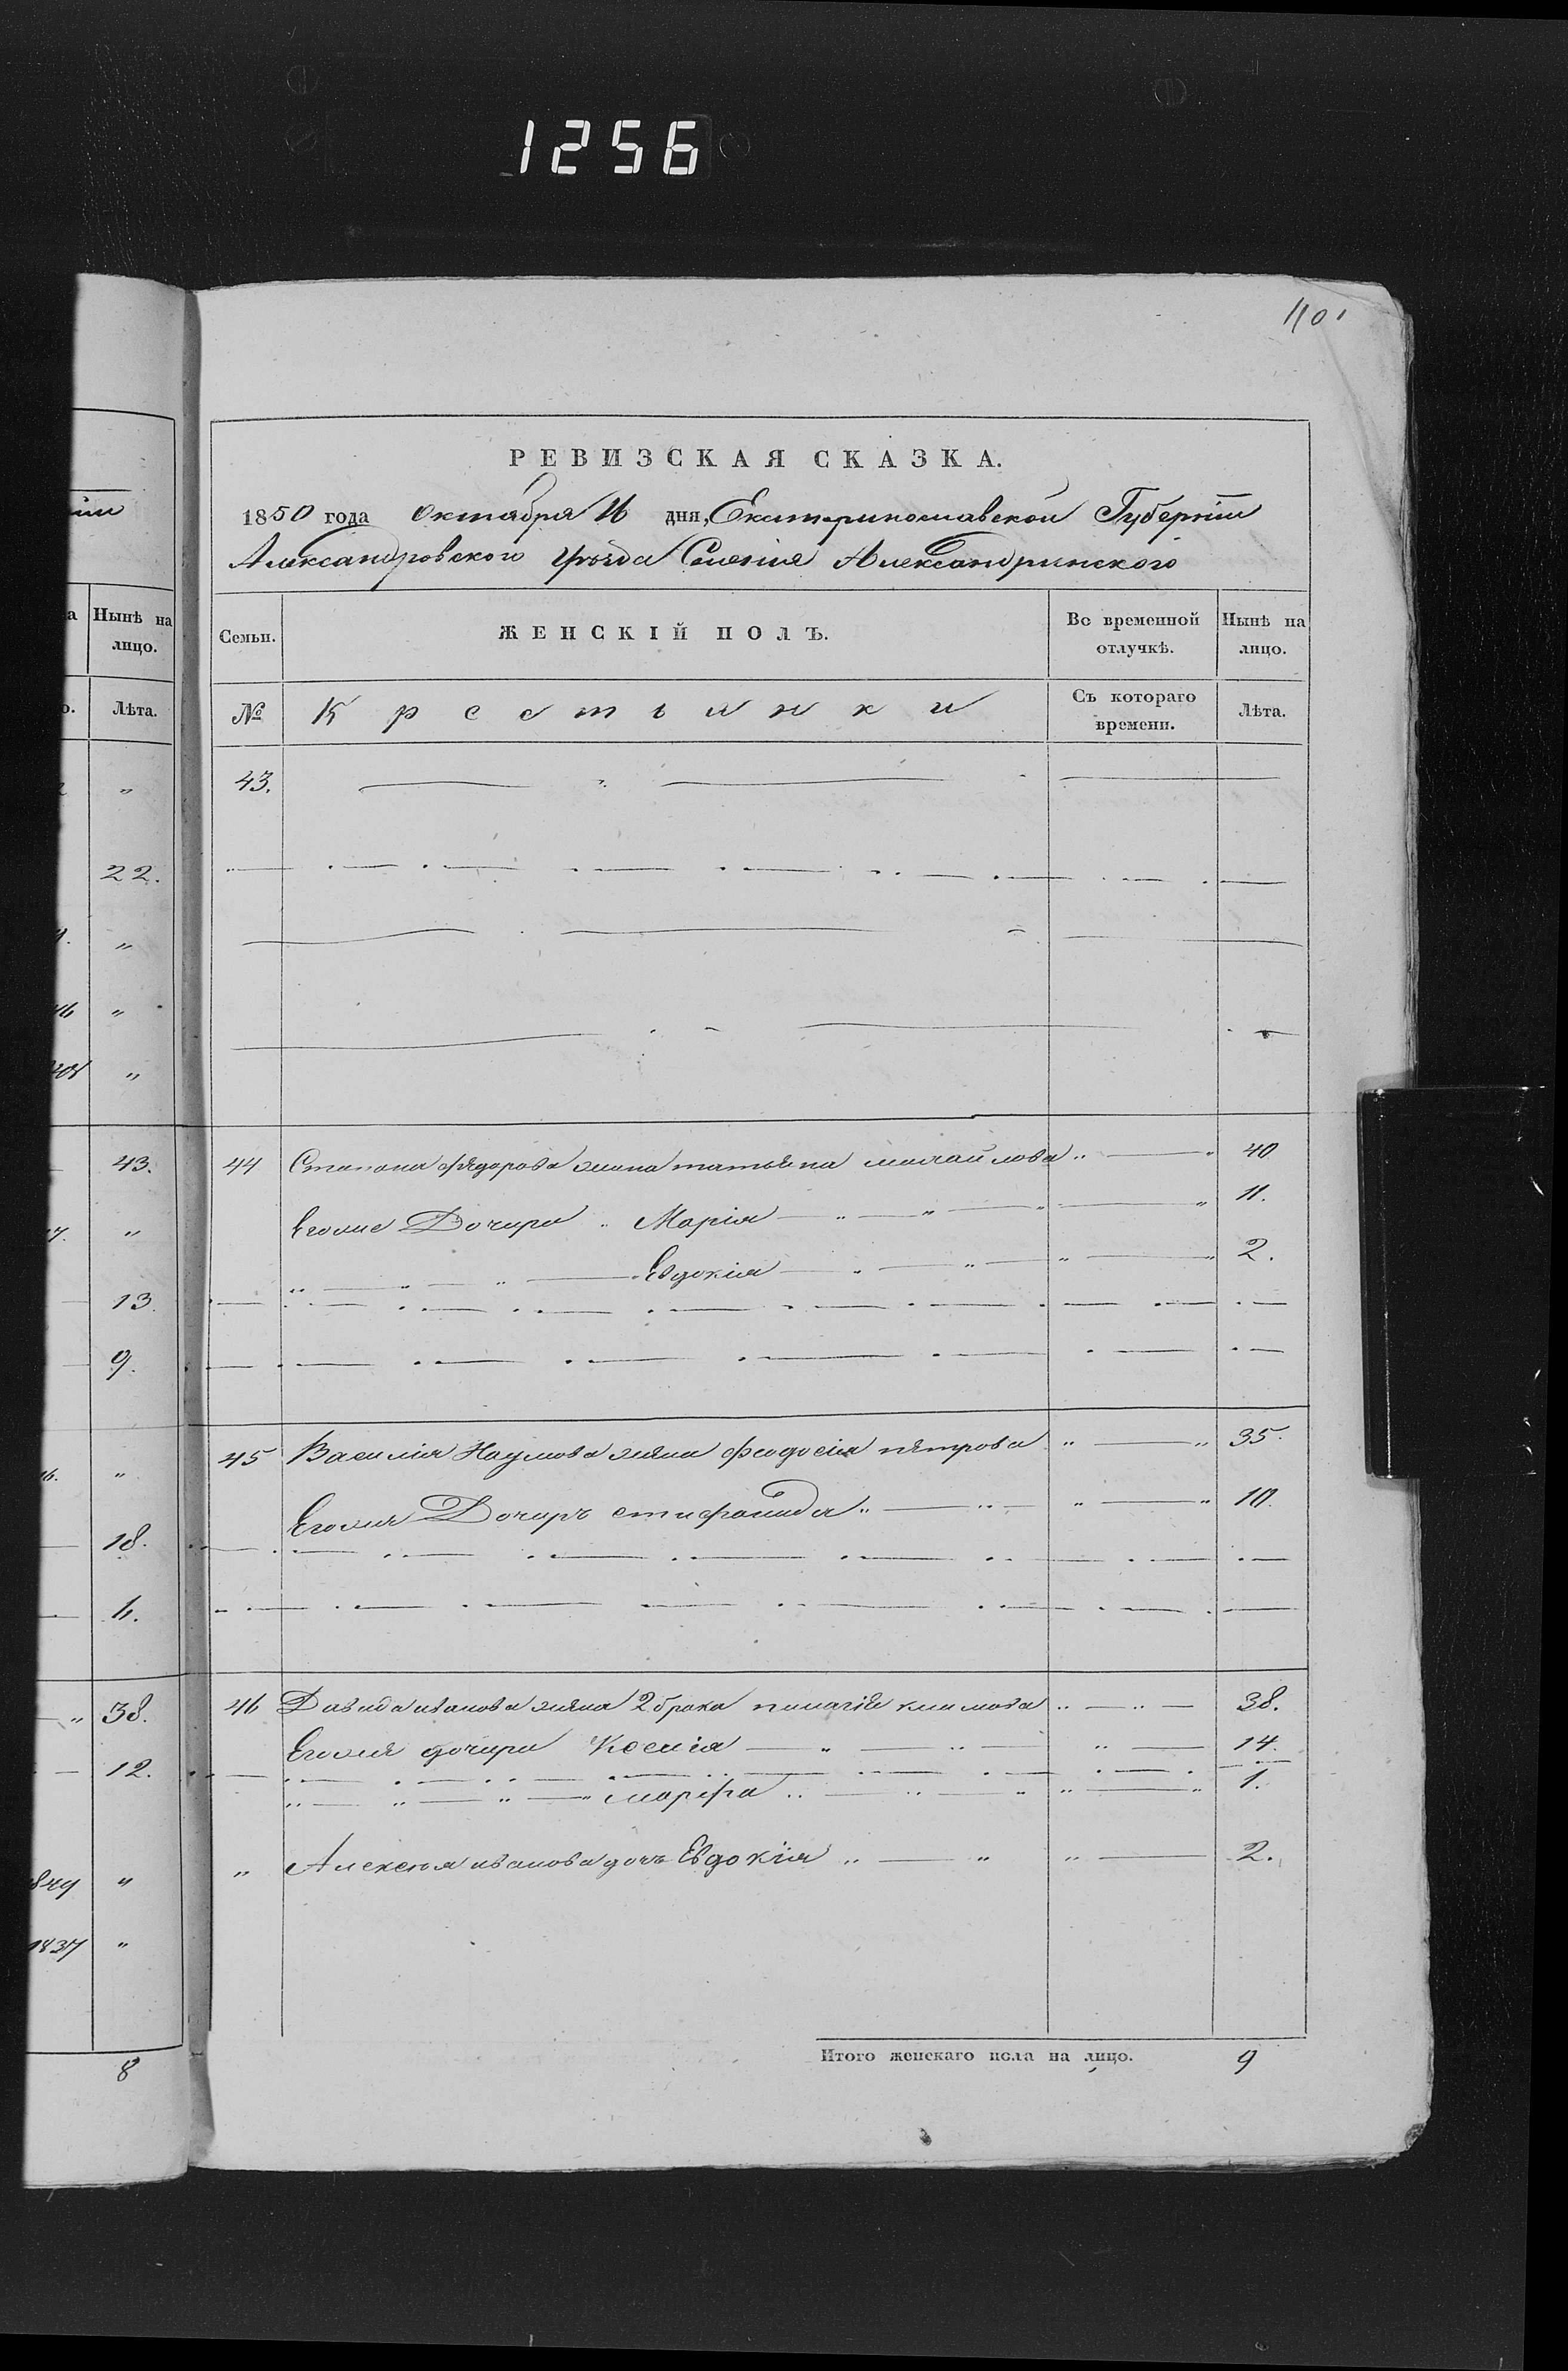 1256
1101
РЕВИЗСКАЯ СКАЗКА.
1850 года Октября 16 дня, Екатеринославской Губернии
Александровского уезда Селения Александринского
Нынѣ на
лицо.
Лѣта.
"
22.
"
"
"
43.
"
13.
9.
"
18.
4.
" 38.
12.
849 "
1837 "
8
Семьи. ЖЕНСКІЙ ПОЛЪ. Во временной отлучкѣ. Нынѣ на лицо.
№ Крестьянки Съ котораго времени. Лѣта.
43.
44 Степана фядорова жена татьяна михайлова " — " 40
Егоже Дочери Марія — " — " — " 11.
" — " — " — Евдокія — " — " — " — " 2.
45 Василія Наумова жена феодосія петрова " — " 35.
Егоже Дочеръ стифанида " — " — " — " 10.
46 Давида иванова жена 2 брака пилагія климова " — " — 38.
Егоже дочери Ксенія — " — " — " — 14.
" — " — " — " марфа " — " — " " — " 1.
" Алексея иванова дочь Евдокія " — " " — 2.
Итого женскаго пола на лицо. 9